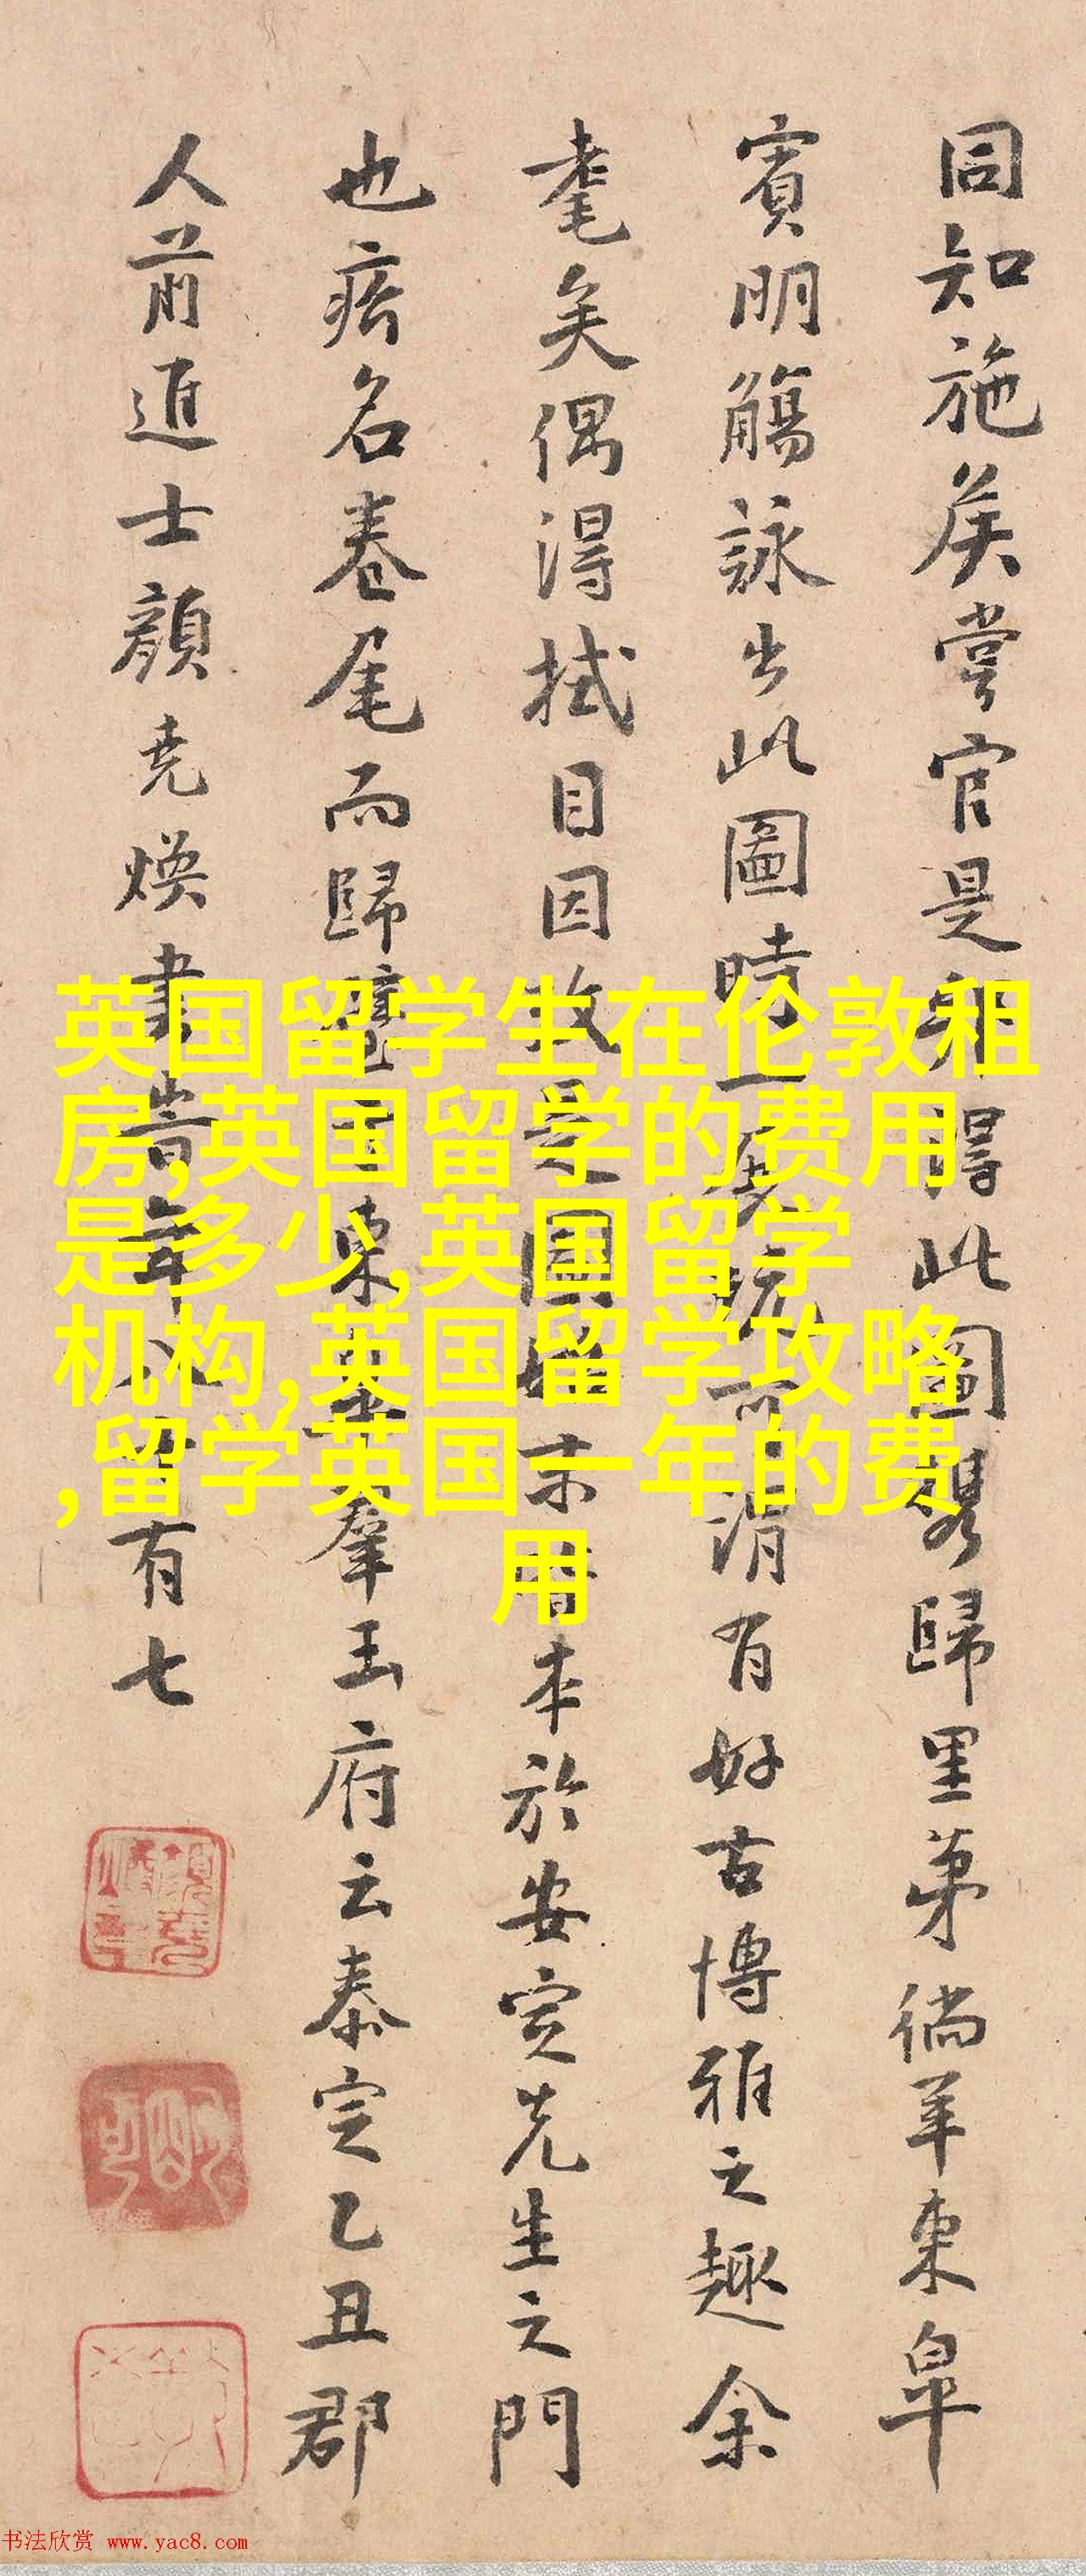 同知施侯嘗官是得此圖攜歸里第徜羊東皐
賓明觴詠出此圖時一展玩可謂有好古博雅之趣余
耄矣偶得拭目因攷是圖始末皆本於安定先生之門
也名卷尾而歸東壁羣玉府云泰定乙丑郡
人前進士顏堯煥書旹年八十有七
英国留学生在伦敦租
房,英国留学的费用
是多少,英国留学
机构,英国留学攻略
,留学英国一年的费
用
书法欣赏 www.yac8.com